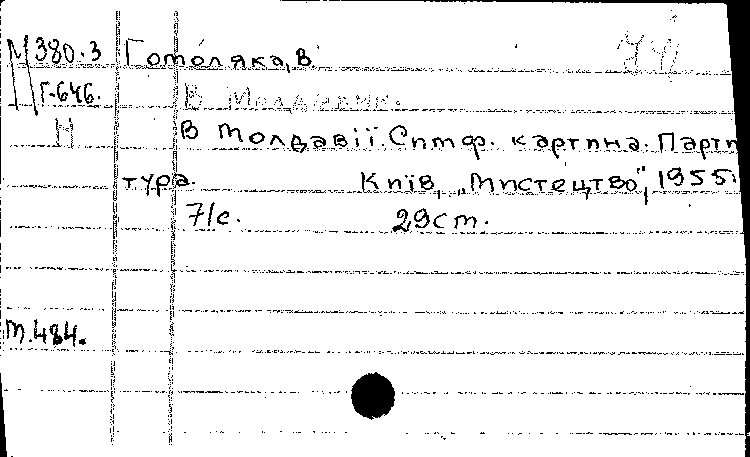 М380.3 Гомоляка, В.
Г-646.
Н В Молдавии.
В Молдавії. Симф. картина. Парти
тура. Київ, „Мистецтво", 1955.
71с. 29см.
М.484.